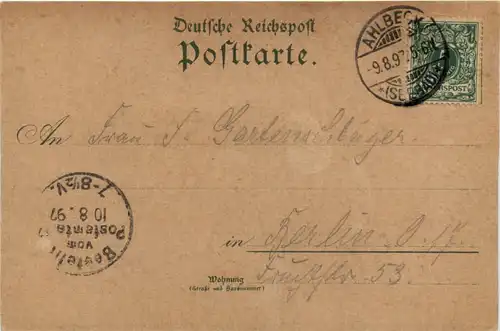 Deutsche Reichspost
Postkarte.
AHLBECK
-9.8.97. 5-6N.
*(SEEBAD)*
An Frau S.
in Berlin O. 17.
Wohnung
(Straße und Hausnummer)
53.
Bestellt
vom
Postamte
10 8. 97
7-8½V.